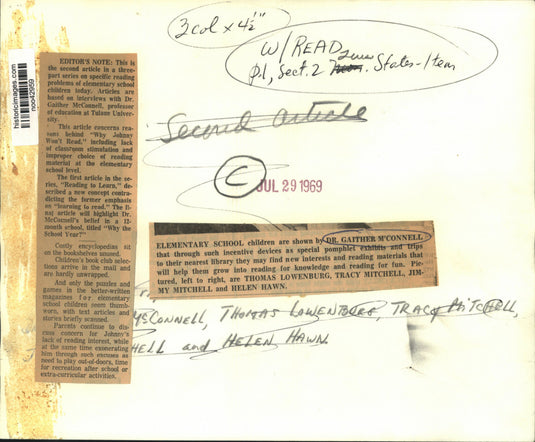 3 col x 4½"
W/ READ
p1, Sect. 2 States-Item
Second article
C
JUL 29 1969
historicimages.com
noo42959
EDITOR'S NOTE: This is
the second article in a three-
part series on specific reading
problems of elementary school
children today. Articles are
based on interviews with Dr.
Gaither McConnell, professor
of education at Tulane Univer-
sity.
This article concerns rea-
sons behind "Why Johnny
Won't Read," including lack
of classroom stimulation and
improper choice of reading
material at the elementary
school level.
The first article in the se-
ries, "Reading to Learn," de-
scribed a new concept contra-
dicting the former emphasis
on "learning to read." The fi-
nal article will highlight Dr.
McConnell's belief in a 12-
month school, titled "Why the
School Year?"
Costly encyclopedias sit
on the bookshelves unused.
Children's book club selec-
tions arrive in the mail and
are hardly unwrapped.
And only the puzzles and
games in the better-written
magazines for elementary
school children seem thumb-
worn, with text articles and
stories briefly scanned.
Parents continue to dis-
cuss concern for Johnny's
lack of reading interest, while
at the same time exonerating
him through such excuses as
need to play out-of-doors, time
for recreation after school or
extra-curricular activities.
ELEMENTARY SCHOOL children are shown by DR. GAITHER M'CONNELL
that through such incentive devices as special pamphlet exhibits and trips
to their nearest library they may find new interests and reading materials that
will help them grow into reading for knowledge and reading for fun. Pic-
tured, left to right, are THOMAS LOWENBURG, TRACY MITCHELL, JIM-
MY MITCHELL and HELEN HAWN.
McCONNELL, THOMAS LOWENBURG, TRACY MITCHELL,
HELL and HELEN HAWN.